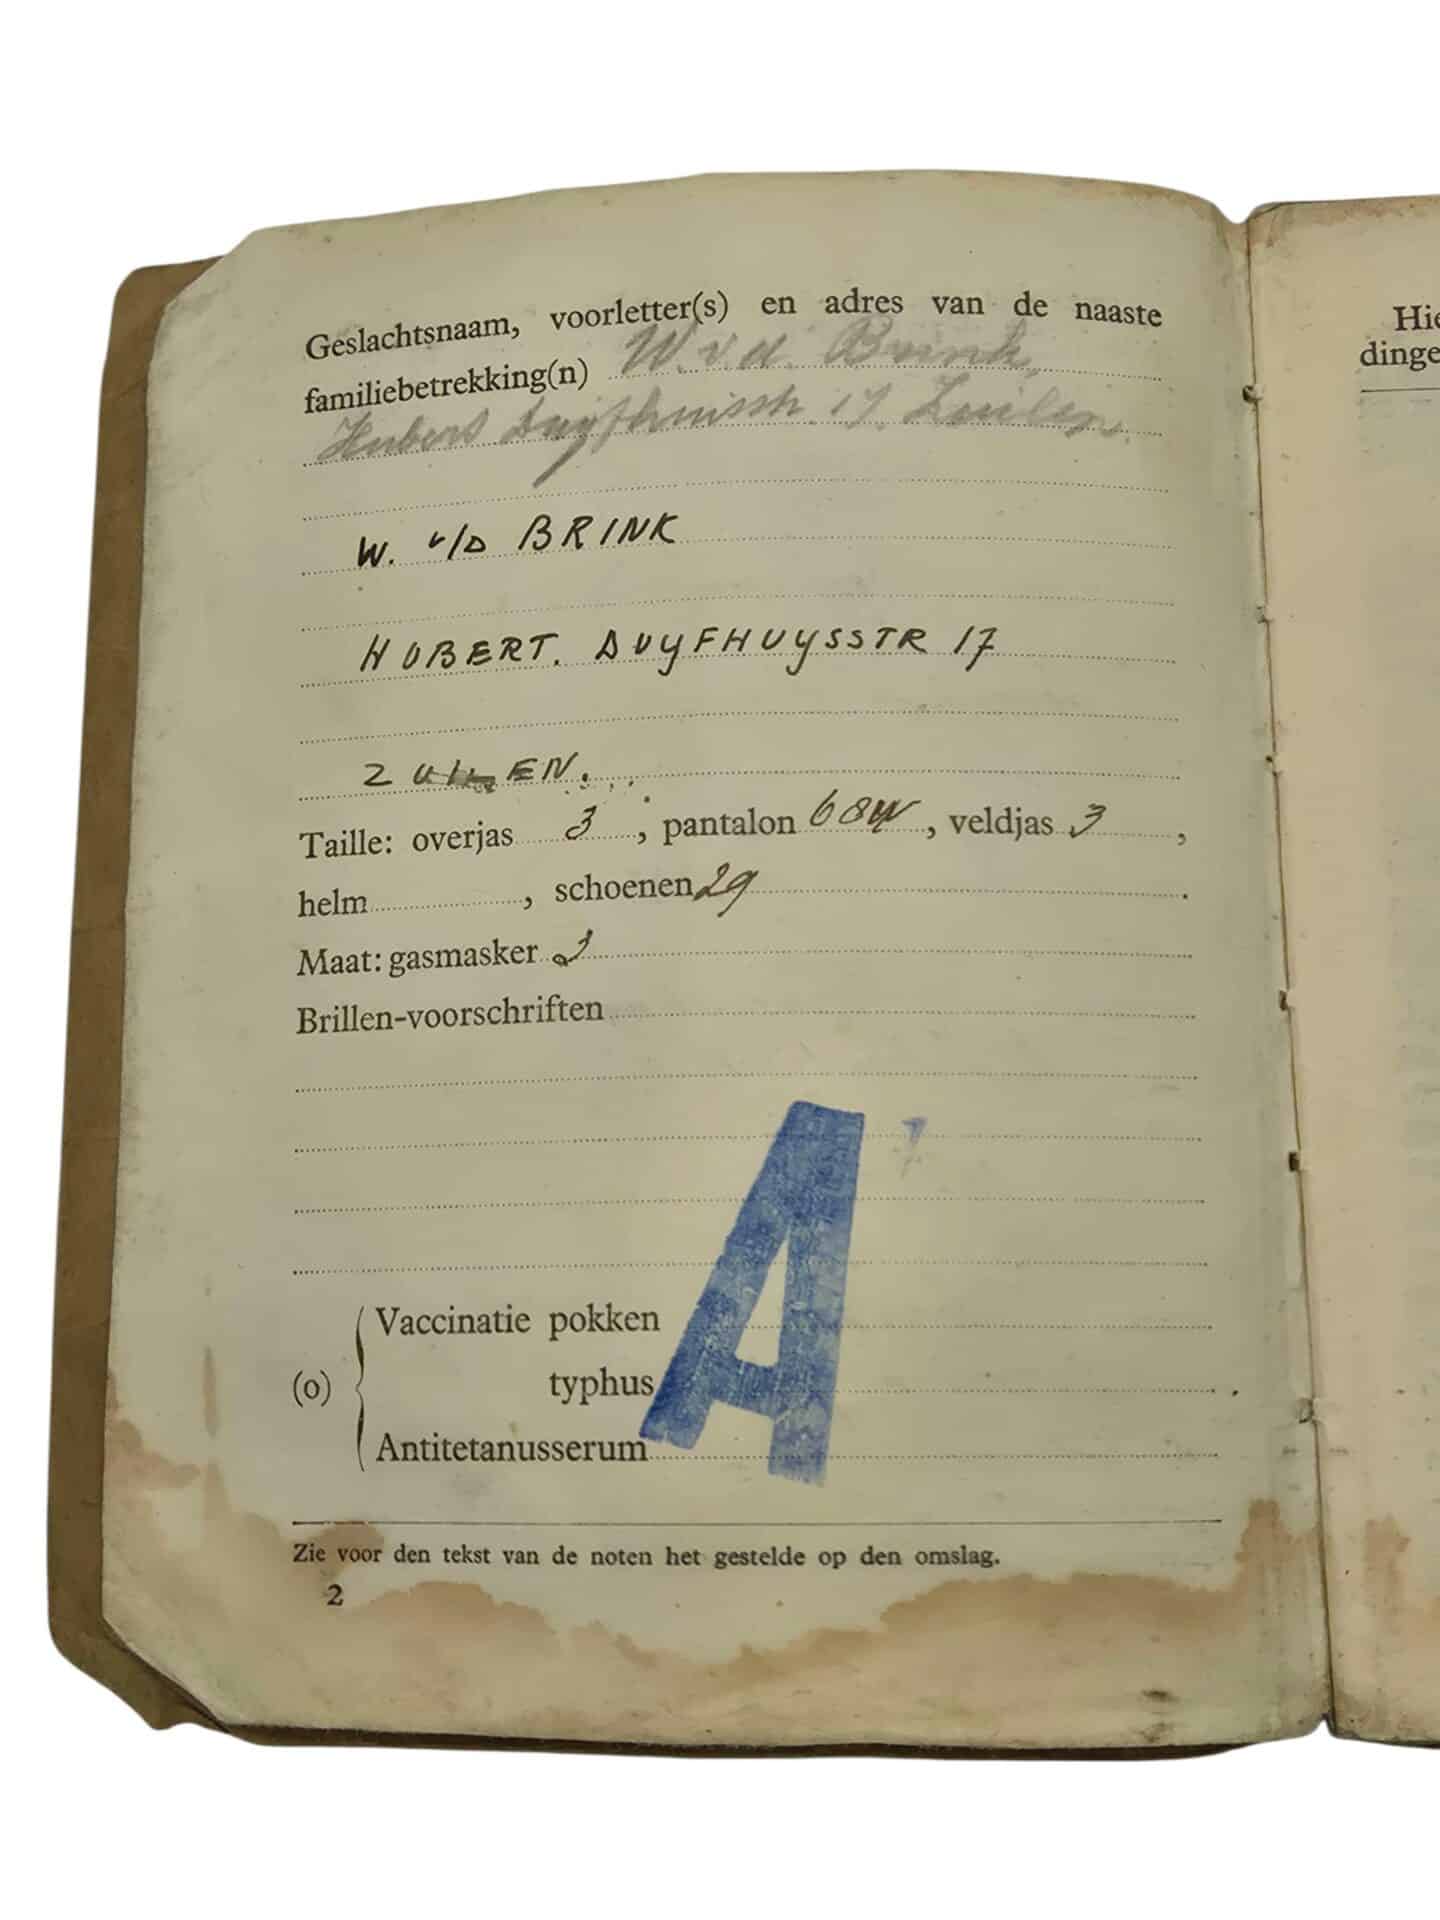 Geslachtsnaam, voorletter(s) en adres van de naaste
familiebetrekking(n) W. v. d. Brink,
Hubert Duyfhuisstr. 17. Zuilen.
W. v/d BRINK
HUBERT. DUYFHUYSSTR 17
ZUILEN.
Taille: overjas 3, pantalon 68W, veldjas 3,
helm , schoenen 29.
Maat: gasmasker 3
Brillen-voorschriften
Vaccinatie pokken
(o) typhus
Antitetanusserum
A
Zie voor den tekst van de noten het gestelde op den omslag.
2
Hie
dinge